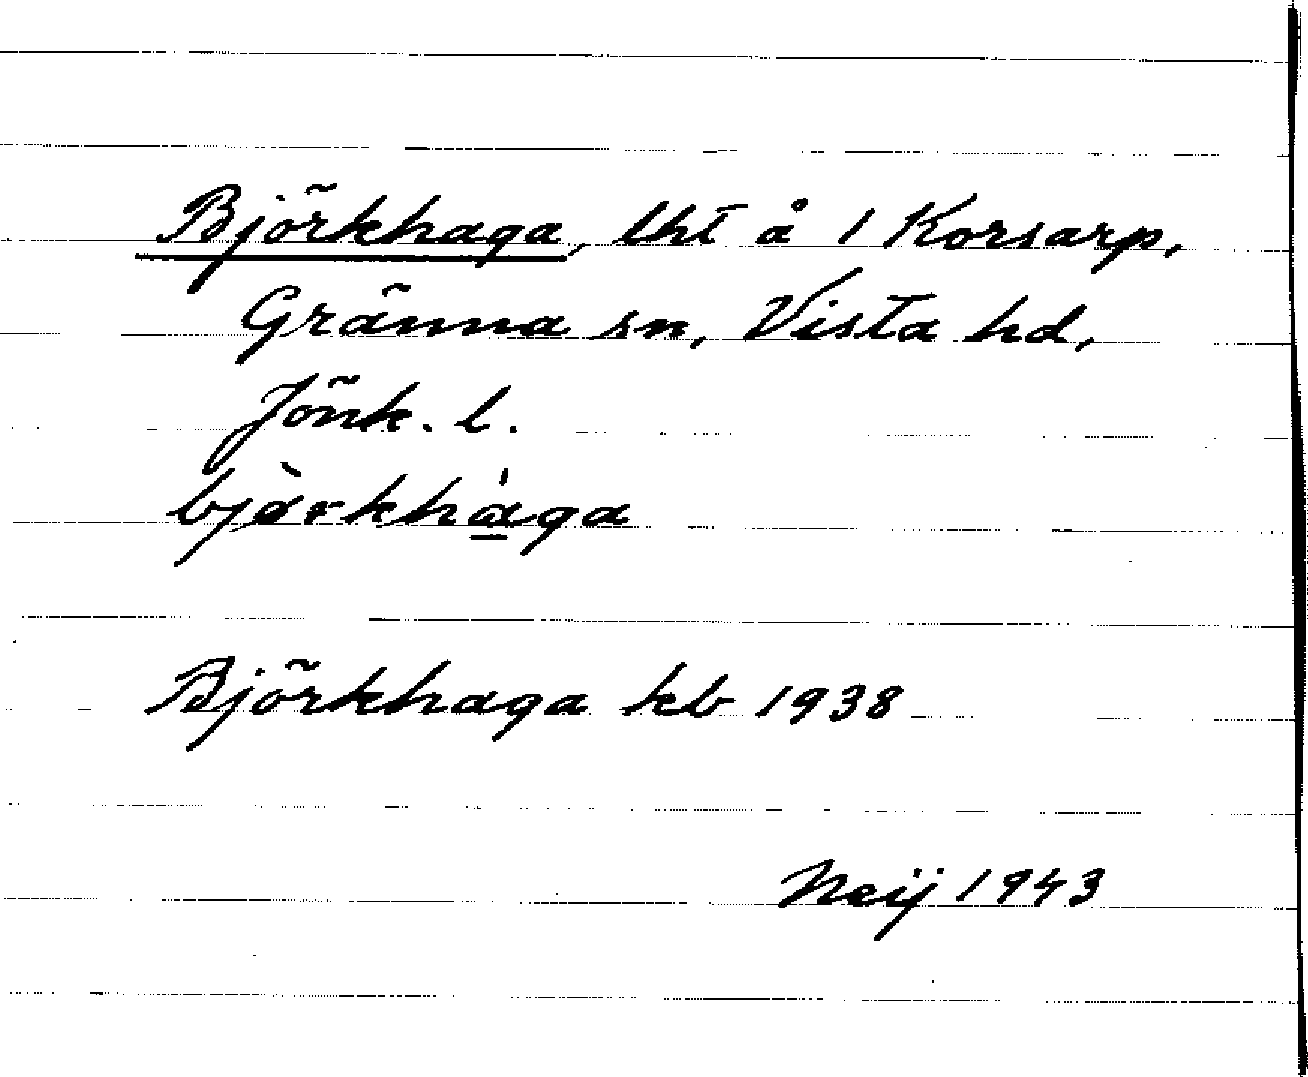 Björkhaga, lht å 1 Korsarp,
Gränna sn, Vista hd,
Jönk. l.
Björkhaga kb 1938
Neij 1943